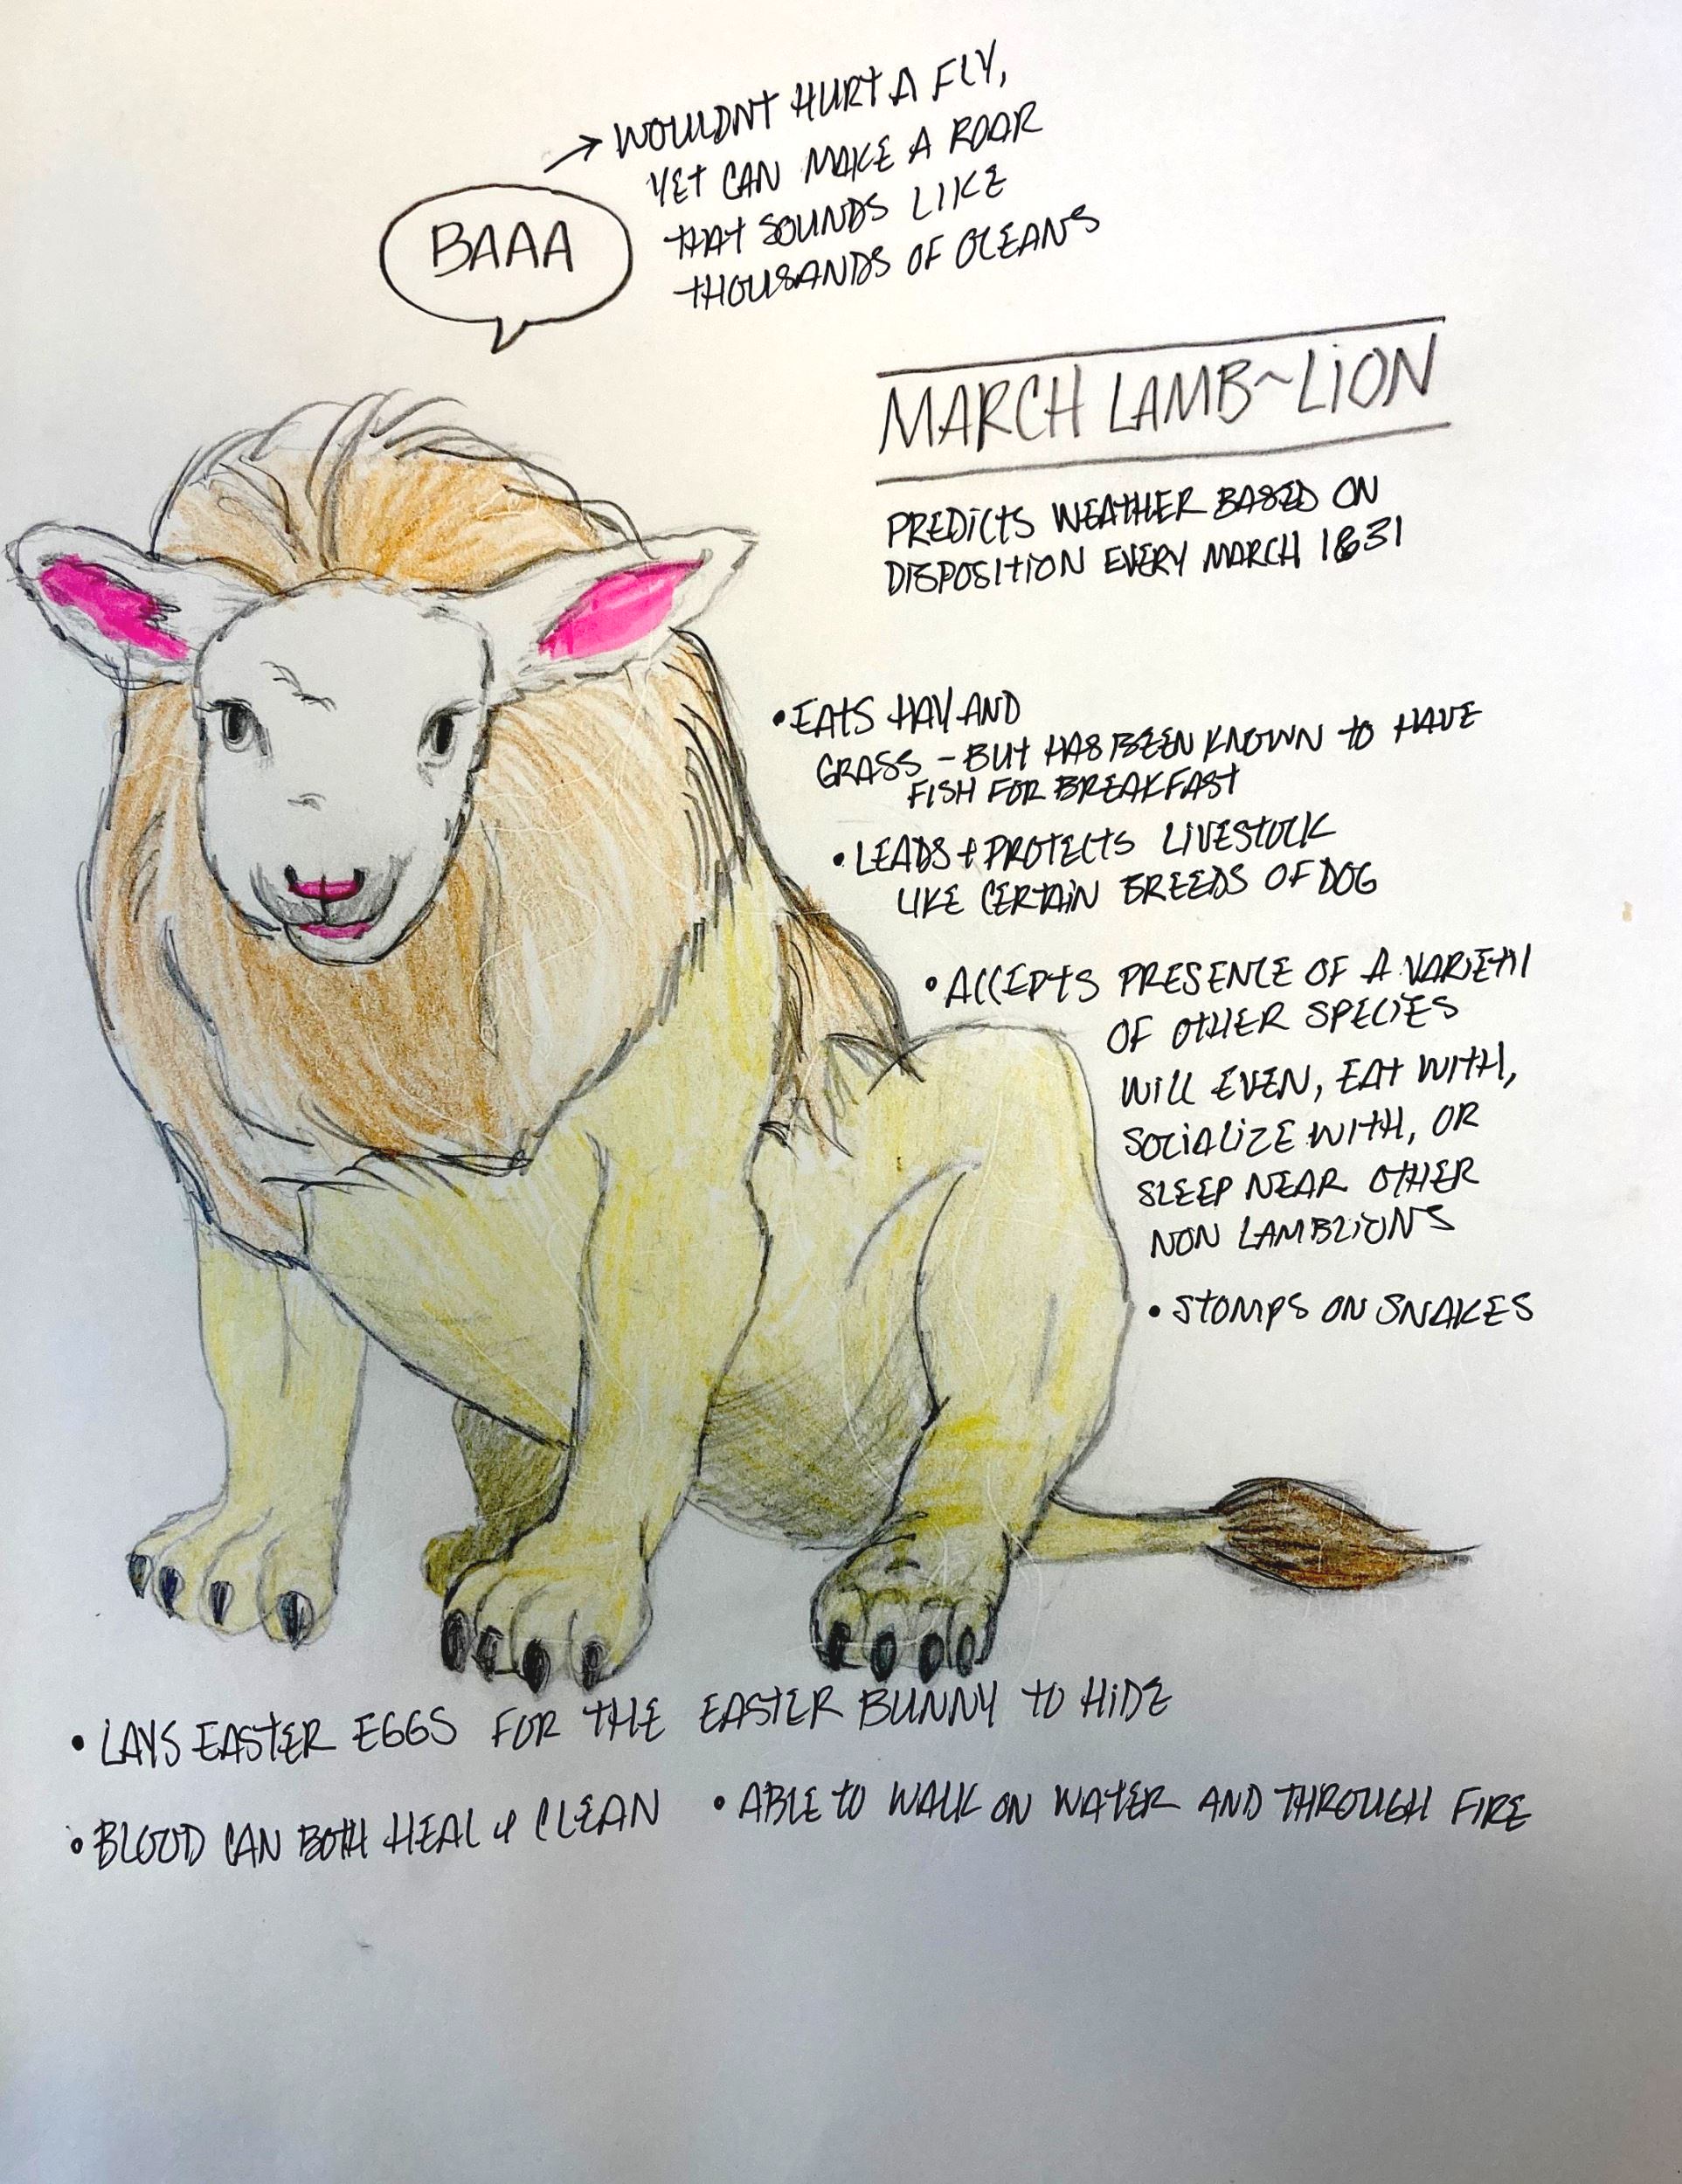 → WOULDNT HURT A FLY,
YET CAN MAKE A ROAR
THAT SOUNDS LIKE
THOUSANDS OF OCEANS
BAAA
MARCH LAMB~LION
PREDICTS WEATHER BASED ON
DISPOSITION EVERY MARCH 1&31
• EATS HAY AND
GRASS - BUT HAS BEEN KNOWN TO HAVE
FISH FOR BREAKFAST
• LEADS + PROTECTS LIVESTOCK
LIKE CERTAIN BREEDS OF DOG
• ACCEPTS PRESENCE OF A VARIETY
OF OTHER SPECIES
WILL EVEN, EAT WITH,
SOCIALIZE WITH, OR
SLEEP NEAR OTHER
NON LAMBLIONS
• STOMPS ON SNAKES
• LAYS EASTER EGGS FOR THE EASTER BUNNY TO HIDE
• BLOOD CAN BOTH HEAL & CLEAN • ABLE TO WALK ON WATER AND THROUGH FIRE